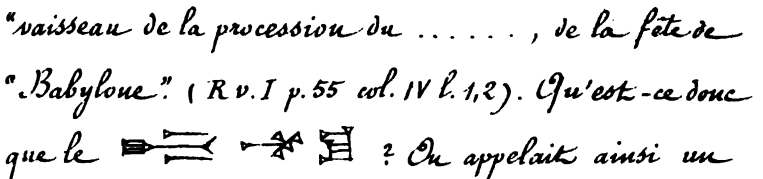 "vaisseau de la procession du ......, de la fête de
"Babylone". (R v. I p. 55 col. IV l. 1, 2). Qu'est-ce donc
que le ? On appelait ainsi un